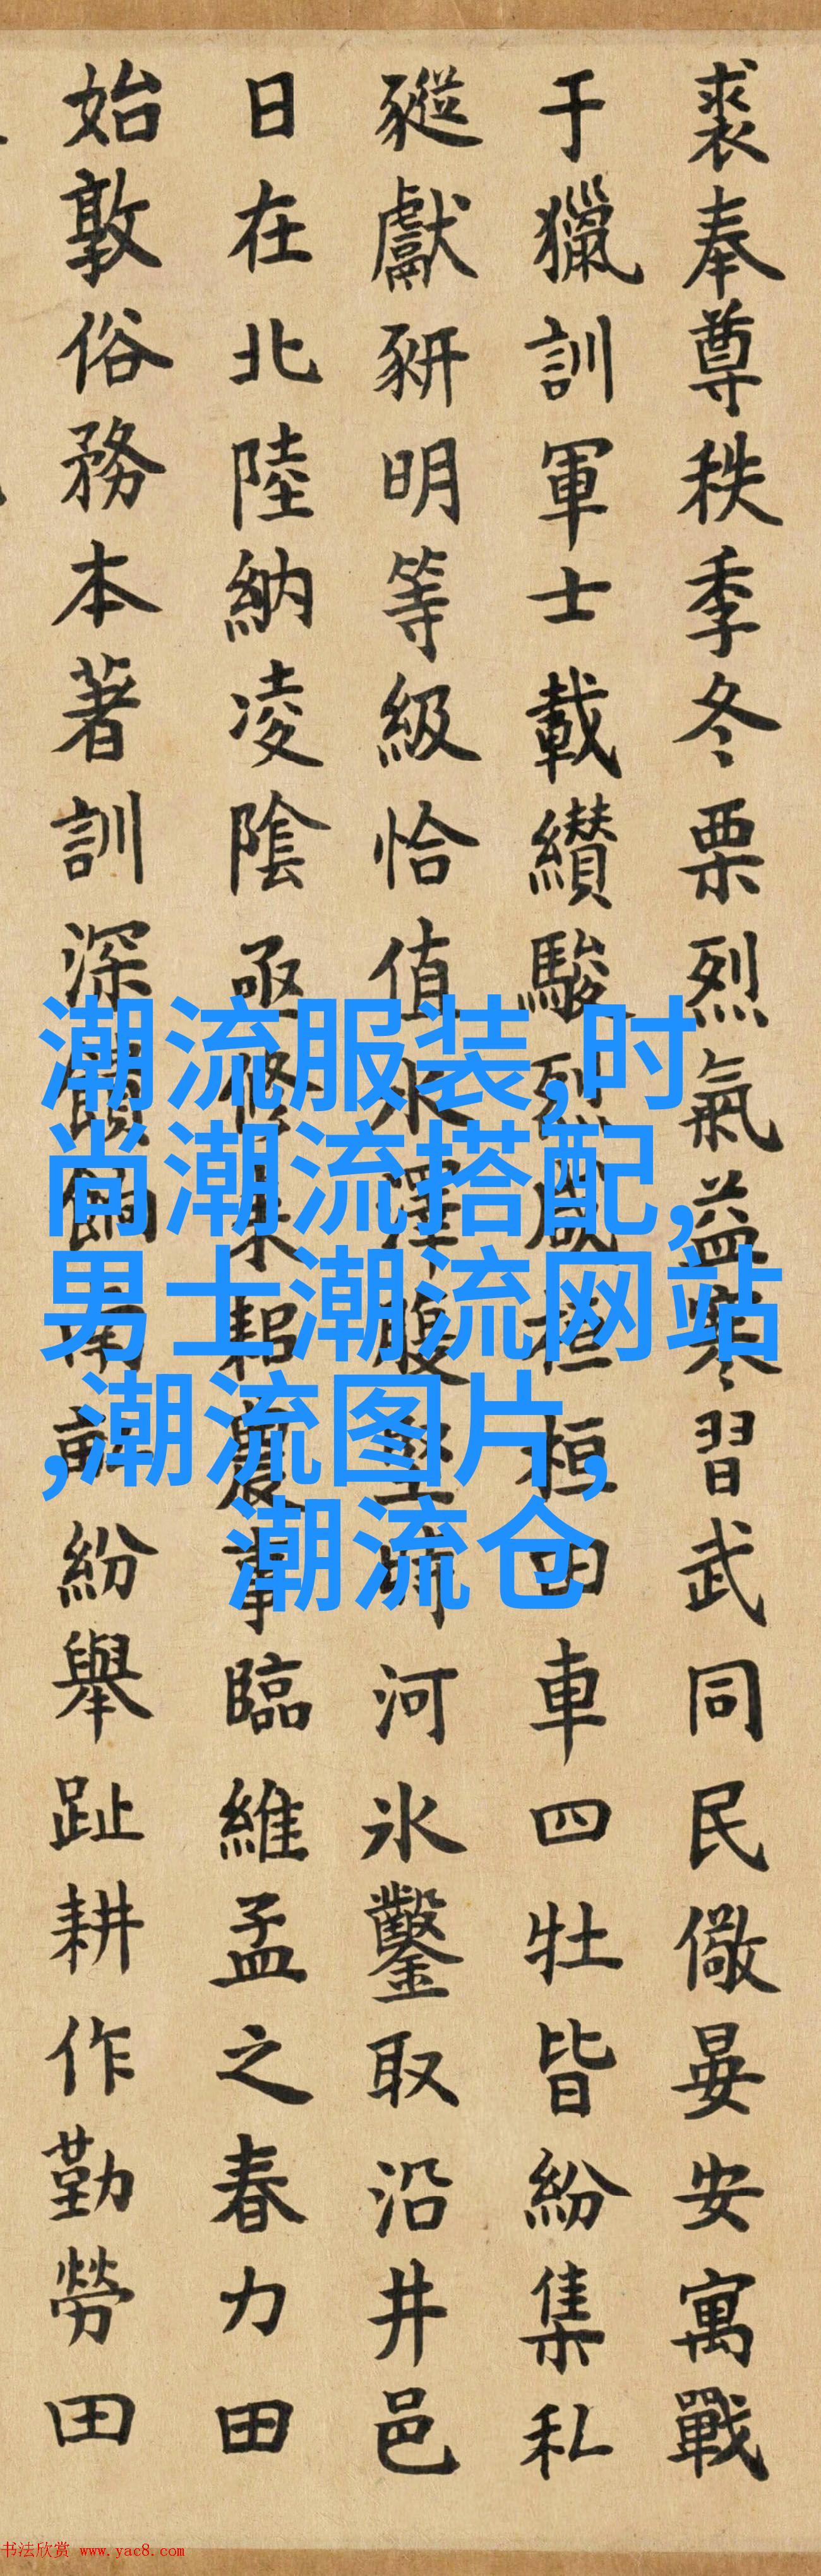 裘奉尊秩季冬栗烈氣益寒習武同民儆晏安寓戰
于獵訓軍士載纘駿烈桓桓田車四牡皆紛集私
豵獻豜明等級恰值水澤腹堅時河氷鑿取沿井邑
日在北陸納凌陰亟修耒耜農事臨維孟之春力田
始敦俗務本著訓深饋餉南畝紛舉趾耕作勤勞田
潮流服装,时
尚潮流搭配,
男士潮流网站
,潮流图片,
潮流仓
书法欣赏 www.yac8.com